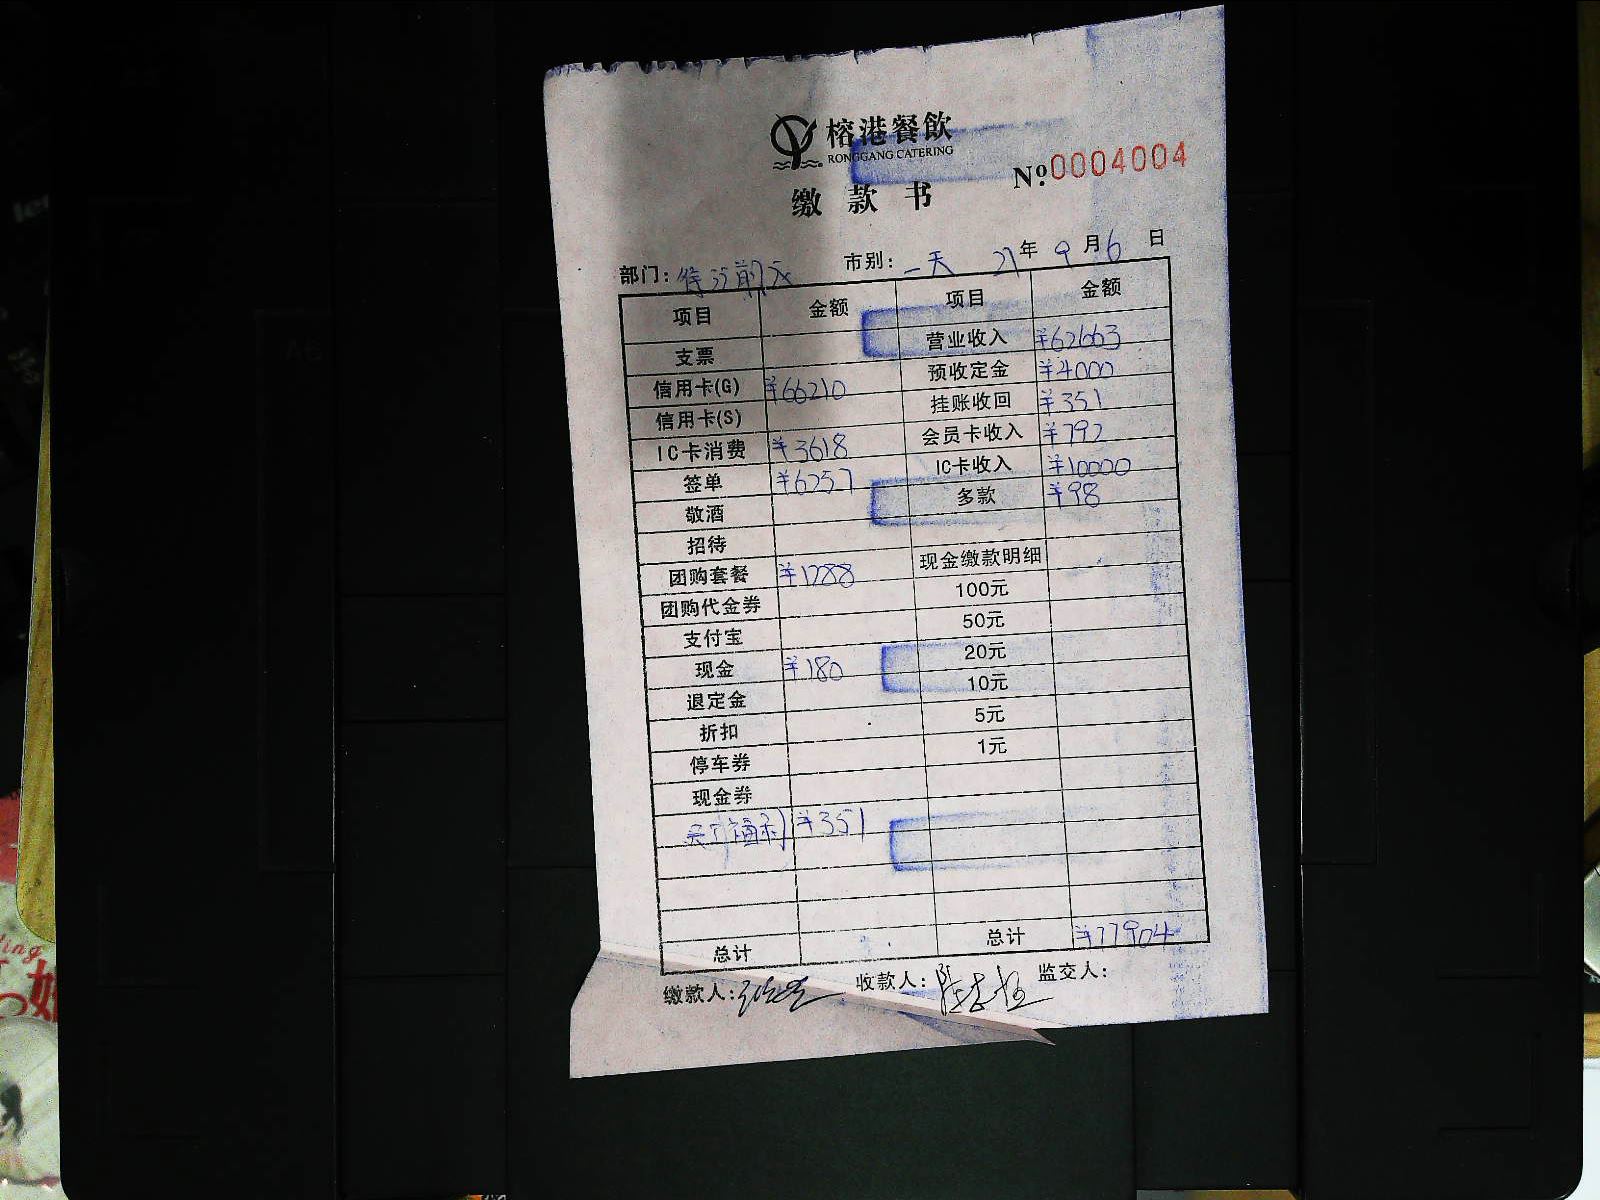 榕港餐飲
RONGGANG CATERING
缴款书
№ 0004004
部门: 市别: 一天 21年 9月 6日
项目 金额 项目 金额
支票 营业收入 ¥62663
信用卡(G) ¥66210 预收定金 ¥4000
信用卡(S) 挂账收回 ¥351
IC卡消费 ¥3618 会员卡收入 ¥792
签单 ¥6257 IC卡收入 ¥10000
敬酒 多款 ¥98
招待
团购套餐 ¥1288 现金缴款明细
团购代金券 100元
支付宝 50元
现金 ¥180 20元
退定金 10元
折扣 5元
停车券 1元
现金券
员工福利 ¥351
总计 总计 ¥77904
缴款人: 收款人: 监交人: